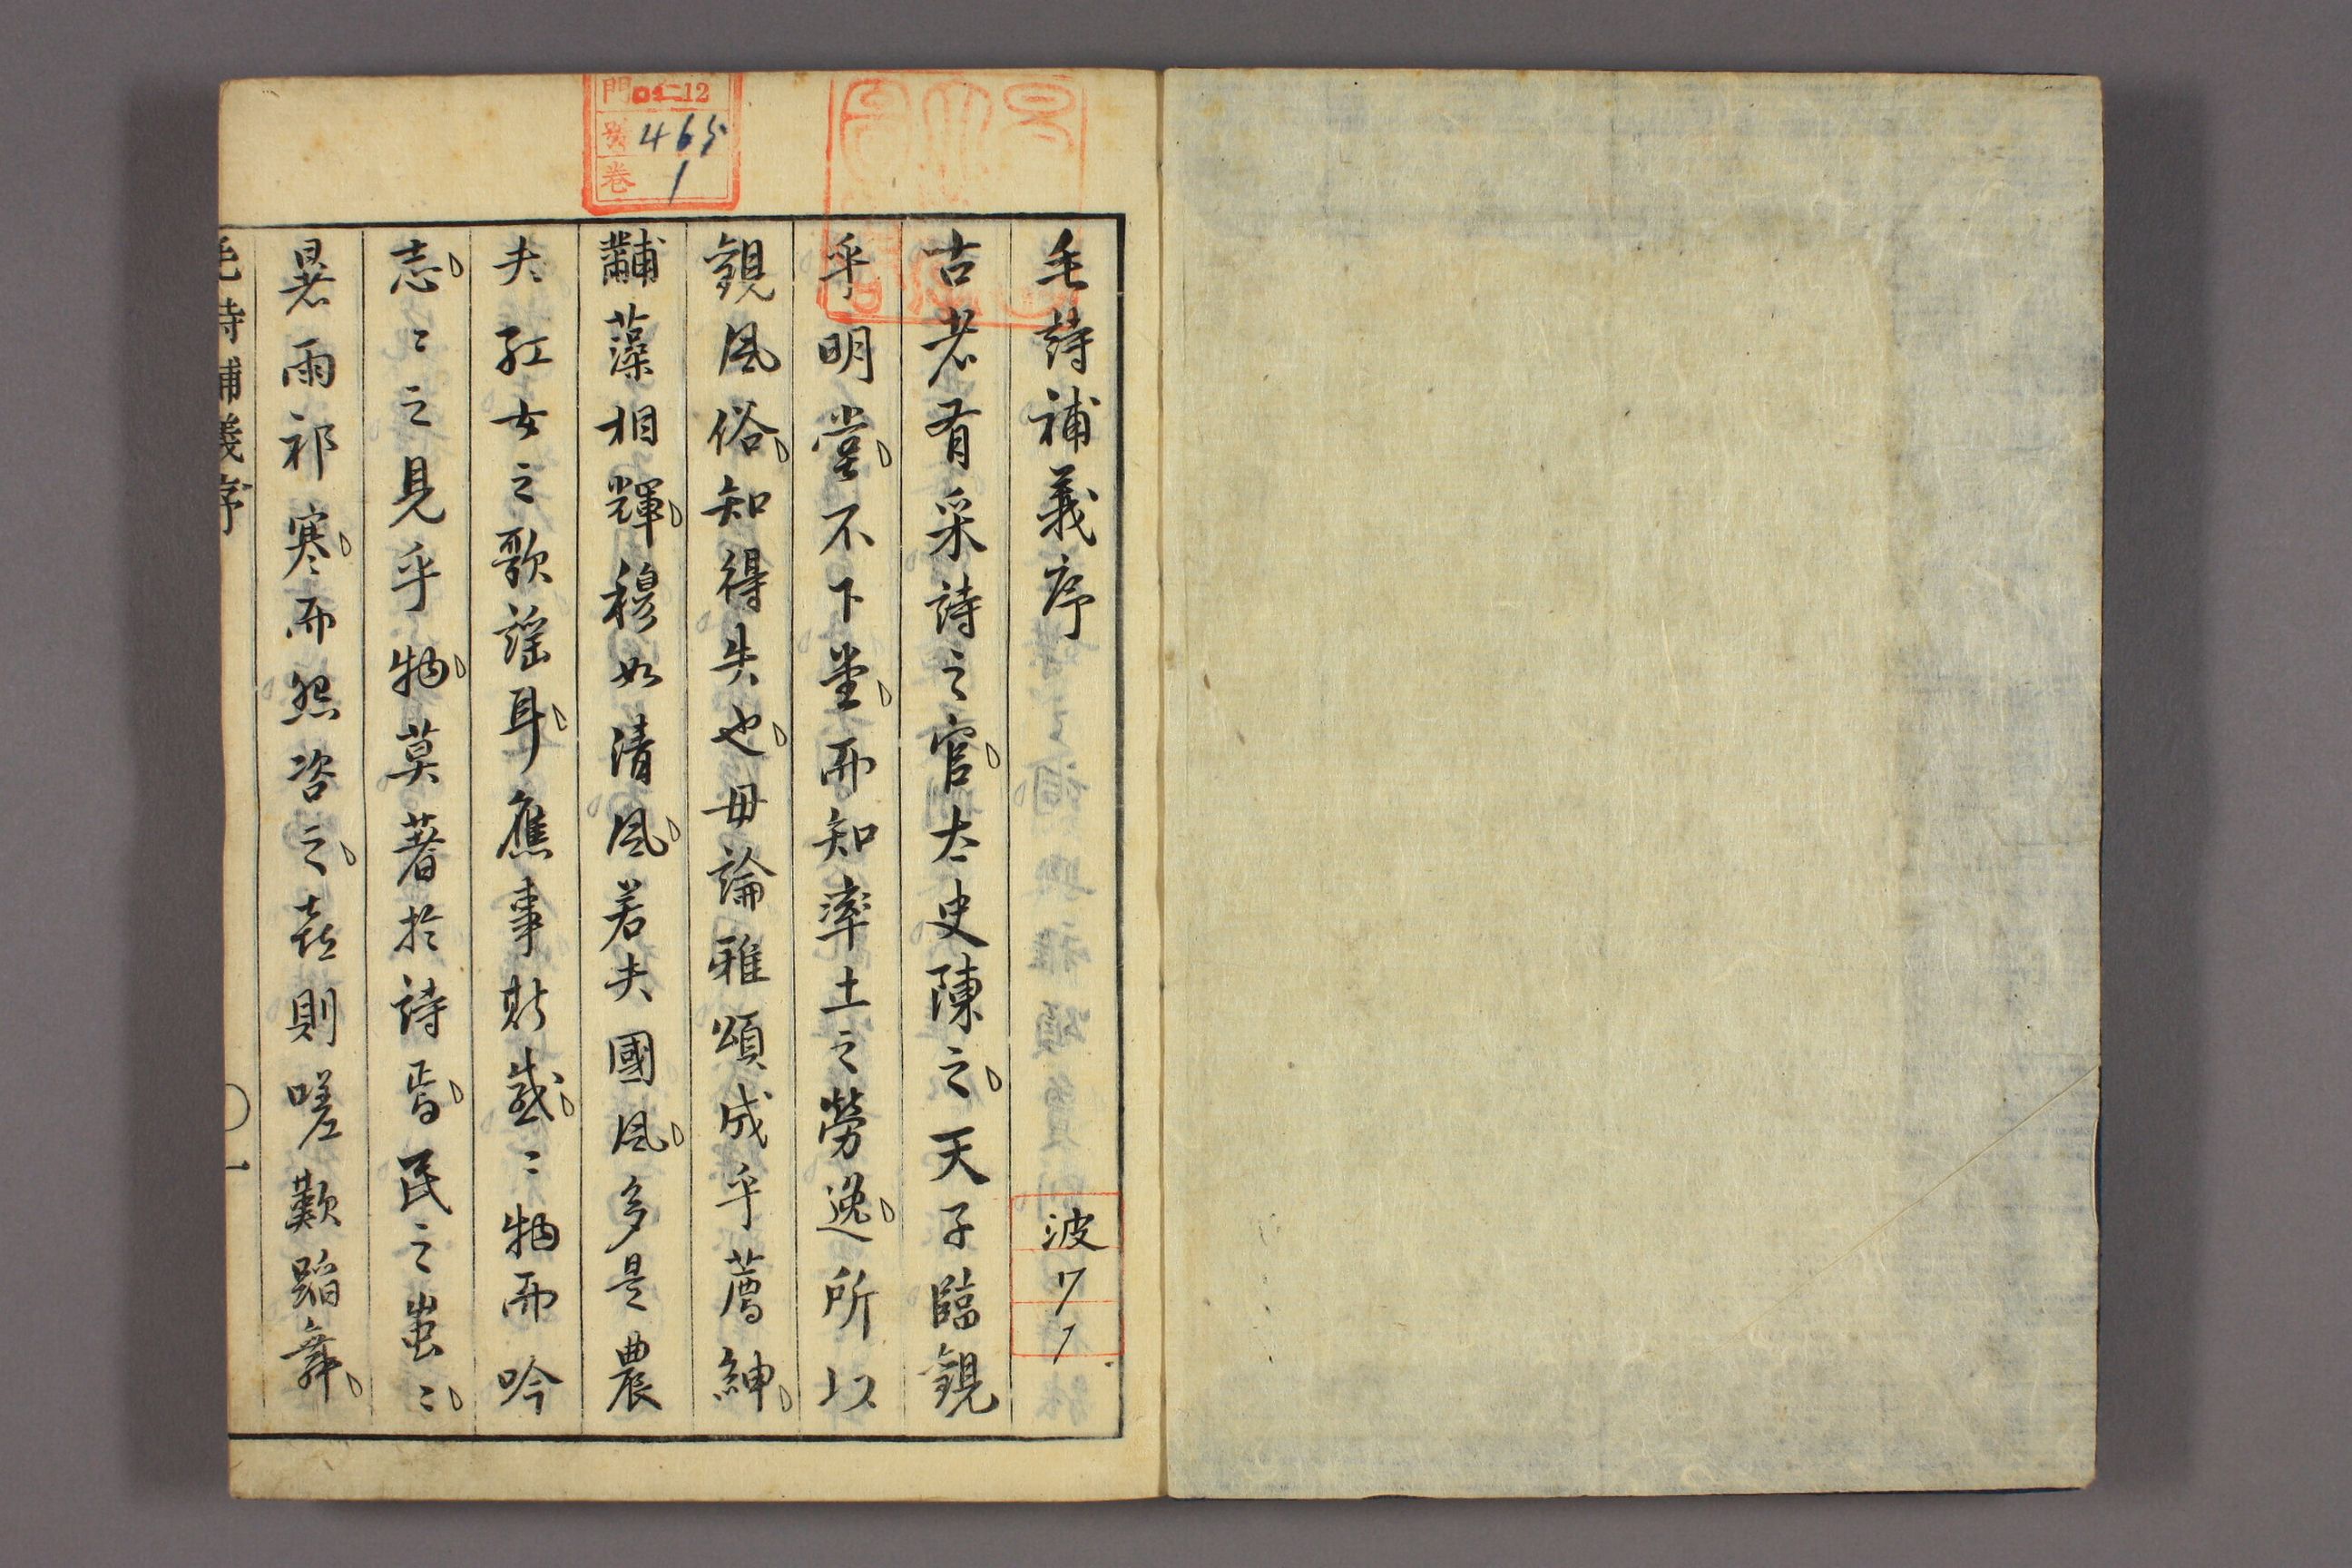 毛詩補義序
古者有采詩之官、太史陳之、天子臨觀
乎明堂、不下堂、而知率土之勞逸、所以
觀風俗、知得失也、毋論雅頌成乎薦紳、
黼藻相輝、穆如清風、若夫國風、多是農
夫紅女之歌謠耳、應事斯感、〻物而吟
志、〻之見乎物、莫著於詩焉、民之蚩〻、
暑雨祁寒、而怨咨之、喜則嗟歎蹈舞、
毛詩補義序
〇一
波
77
1
門 12
號 465
卷 1